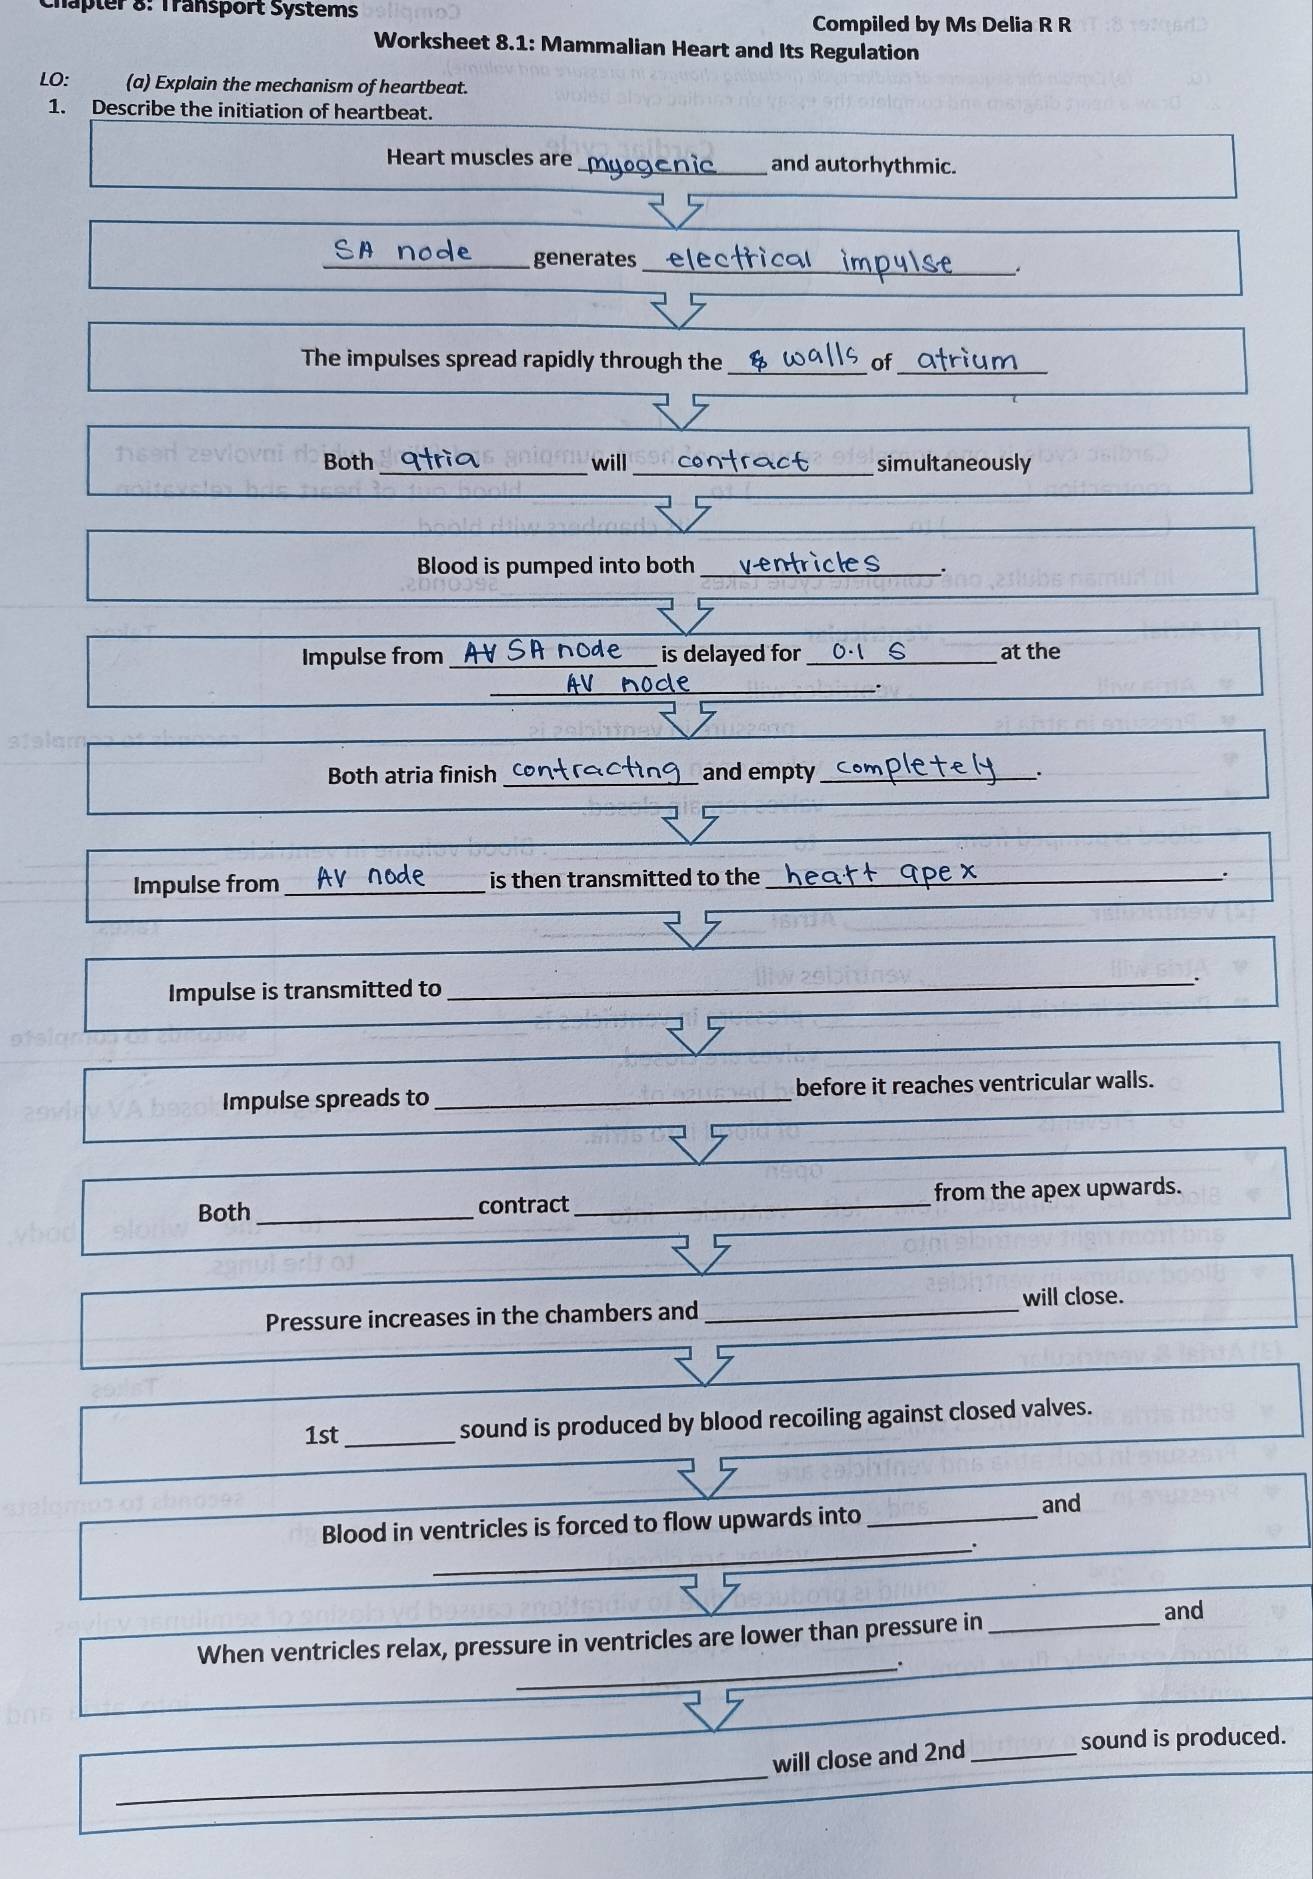 Chapter 8: Transport Systems
Compiled by Ms Delia R R
Worksheet 8.1: Mammalian Heart and Its Regulation
LO: (a) Explain the mechanism of heartbeat.
1. Describe the initiation of heartbeat.
Heart muscles are myogenic and autorhythmic.
SA node generates electrical impulse.
The impulses spread rapidly through the walls of atrium
Both atria will contract simultaneously
Blood is pumped into both ventricles.
Impulse from AV SA node is delayed for 0.1 s at the
AV node.
Both atria finish contracting and empty completely.
Impulse from AV node is then transmitted to the heart apex.
Impulse is transmitted to .
Impulse spreads to before it reaches ventricular walls.
Both contract from the apex upwards.
Pressure increases in the chambers and will close.
1st sound is produced by blood recoiling against closed valves.
Blood in ventricles is forced to flow upwards into and
.
When ventricles relax, pressure in ventricles are lower than pressure in and
.
will close and 2nd sound is produced.